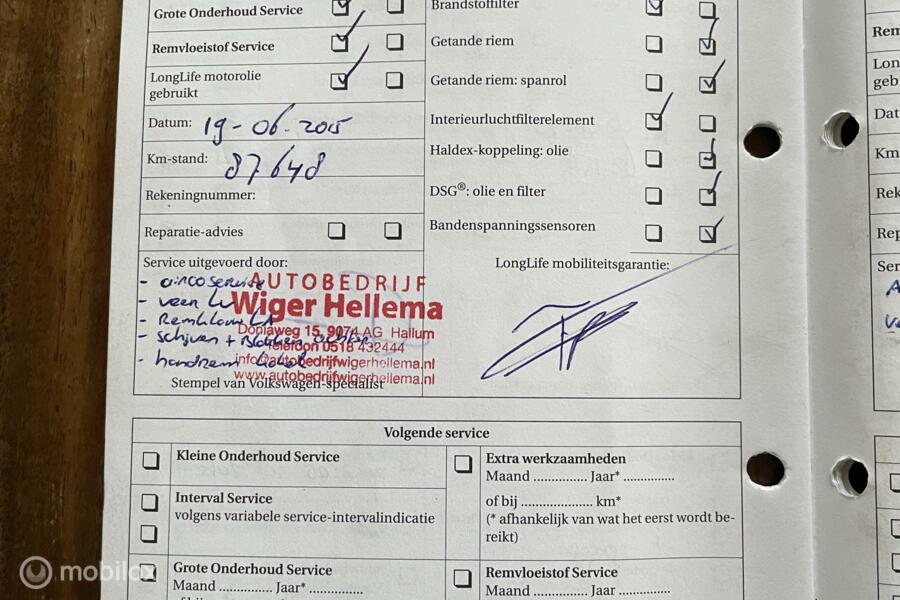 Grote Onderhoud Service
Remvloeistof Service
LongLife motorolie
gebruikt
Datum: 19-06-2015
Km-stand: 87648
Rekeningnummer:
Reparatie-advies
Service uitgevoerd door:
- aircoservice
- veer LV
- Remklauw LA
- schijven + Blokken achter
- handrem kabel
AUTOBEDRIJF
Wiger Hellema
Doniaweg 15, 9074 AG Hallum
Telefoon 0518 432444
info@autobedrijfwigerhellema.nl
www.autobedrijfwigerhellema.nl
Stempel van Volkswagen-specialist
Brandstoffilter
Getande riem
Getande riem: spanrol
Interieurluchtfilterelement
Haldex-koppeling: olie
DSG®: olie en filter
Bandenspanningssensoren
LongLife mobiliteitsgarantie:
Volgende service
Kleine Onderhoud Service
Interval Service
volgens variabele service-intervalindicatie
Grote Onderhoud Service
Maand ............... Jaar* ...............
Extra werkzaamheden
Maand ............... Jaar* ...............
of bij .................... km*
(* afhankelijk van wat het eerst wordt be-
reikt)
Remvloeistof Service
Maand ............... Jaar ...............
Rem
Lon
geb
Dat
Km
Rek
Rep
Ser
mobilox